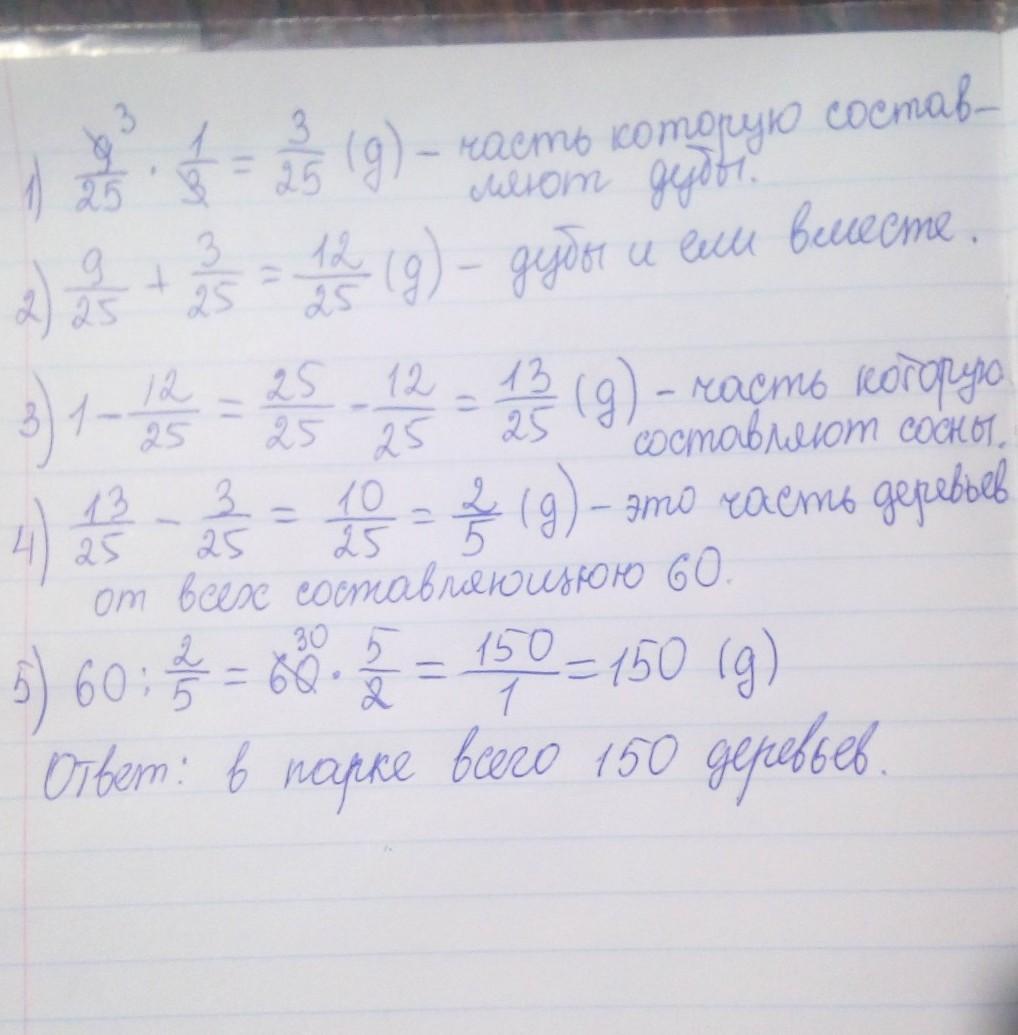 1) 9/25 3 · 1/3 = 3/25 (д) – часть которую состав-
ляют дубы.
2) 9/25 + 3/25 = 12/25 (д) – дубы и ели вместе.
3) 1 – 12/25 = 25/25 – 12/25 = 13/25 (д) – часть которую
составляют сосны.
4) 13/25 – 3/25 = 10/25 = 2/5 (д) – это часть деревьев
от всех составляющюю 60.
5) 60 : 2/5 = 60 30 · 5/2 = 150/1 = 150 (д)
Ответ: в парке всего 150 деревьев.